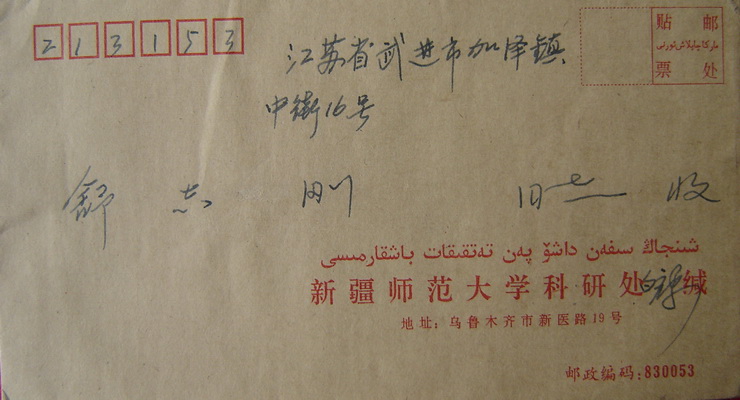 213153
贴 邮
ماركا چاپلاش ئورنى
票 处
江苏省武进市加泽镇
中街16号
舒 志 刚 同志 收
شىنجاڭ سىفەن داشۆ پەن تەتقىقات باشقارمىسى
新疆师范大学科研处 缄
地址：乌鲁木齐市新医路19号
邮政编码：830053